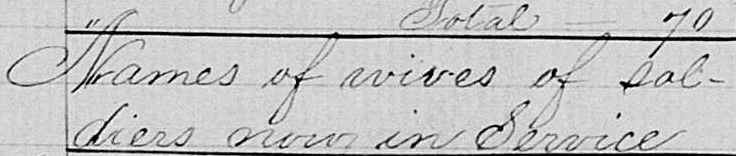 Total — 70
"Names of wives of sol-
diers now in Service